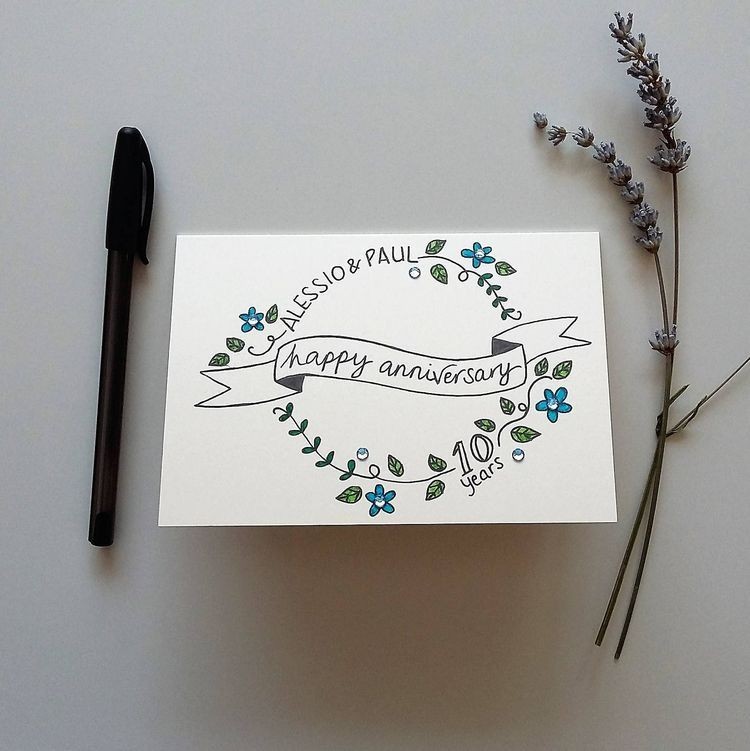 ALESSIO & PAUL
happy anniversary
10
years